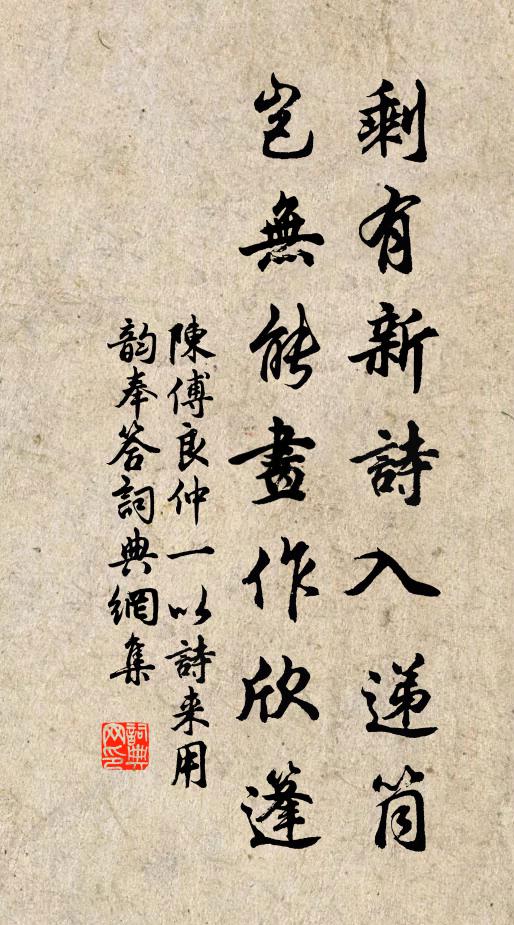 剩有新詩入递筒
岂無能畫作欣蓬
陳傅良仲一以詩来用
韵奉答詞典網集
詞典
网印